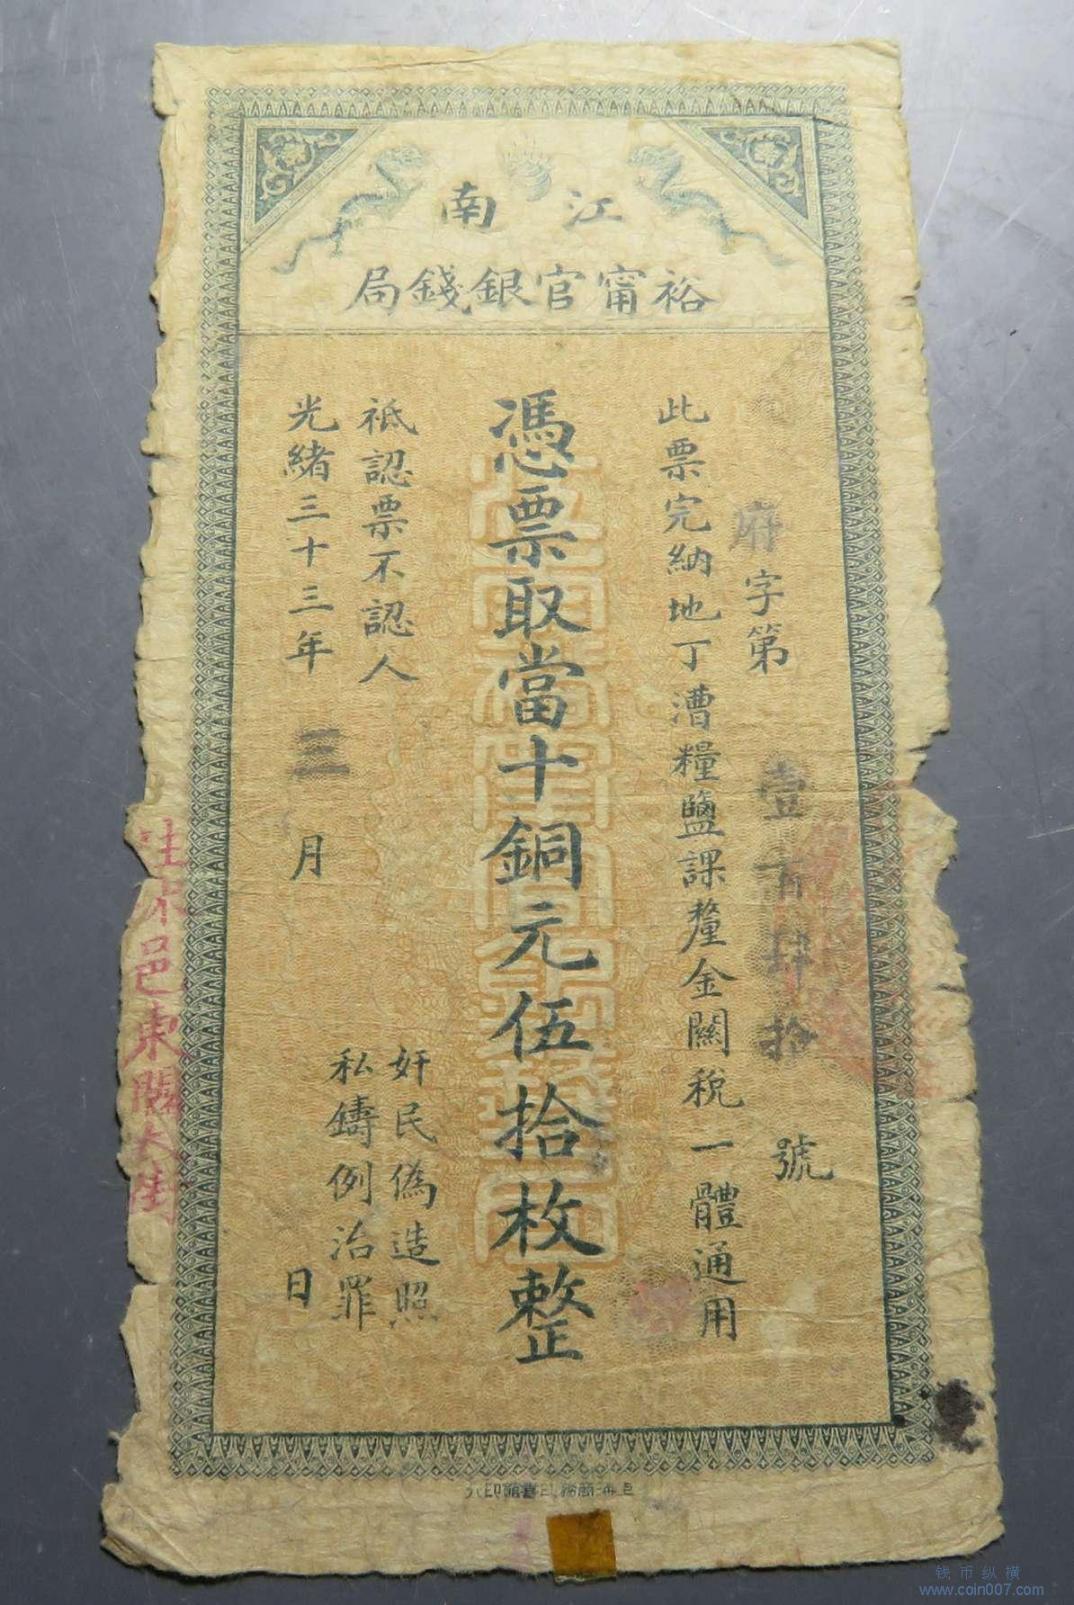 江南
裕甯官銀錢局
府字第壹百肆拾號
此票完納地丁漕糧鹽課釐金關稅一體通用
憑票取當十銅元伍拾枚整
祗認票不認人
奸民偽造照
私鑄例治罪
光緒三十三年三月日
邑東關大街
錢幣縱橫
www.coin007.com